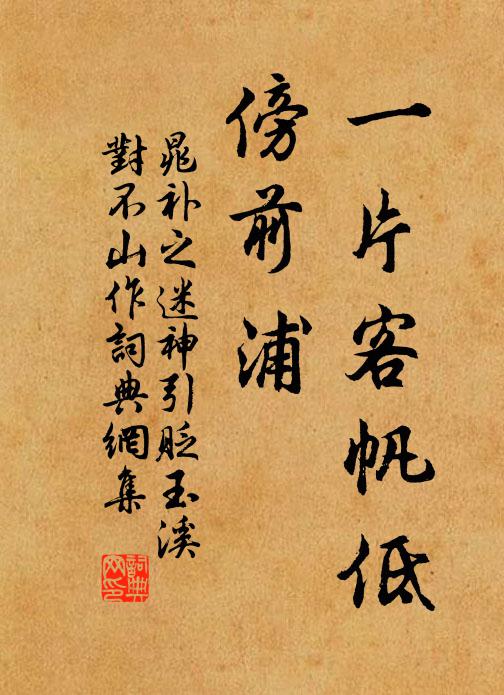 一片客帆低
傍前浦
晁补之迷神引貶玉溪
對不山作詞典網集
詞典網印